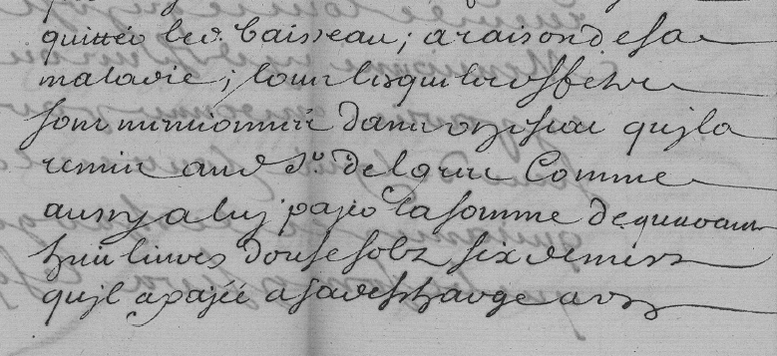 quittéo led. Vaisseau; a raison de sa
maladie; tous lesquels effets
sont mentionnéz dans
remis aud Sr. Delgrez Comme
aussy a luy payéo la somme de quarante
huit livres douse solz six deniers
quil a payéé a sa descharge a